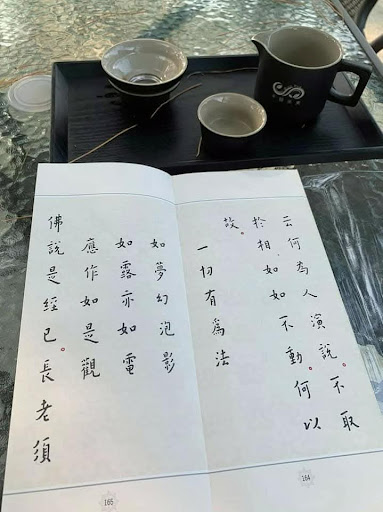 云何為人演說。不取
於相、如如不動。何以
故。
一切有為法
164
如夢幻泡影
如露亦如電
應作如是觀
佛說是經已。長老須
165